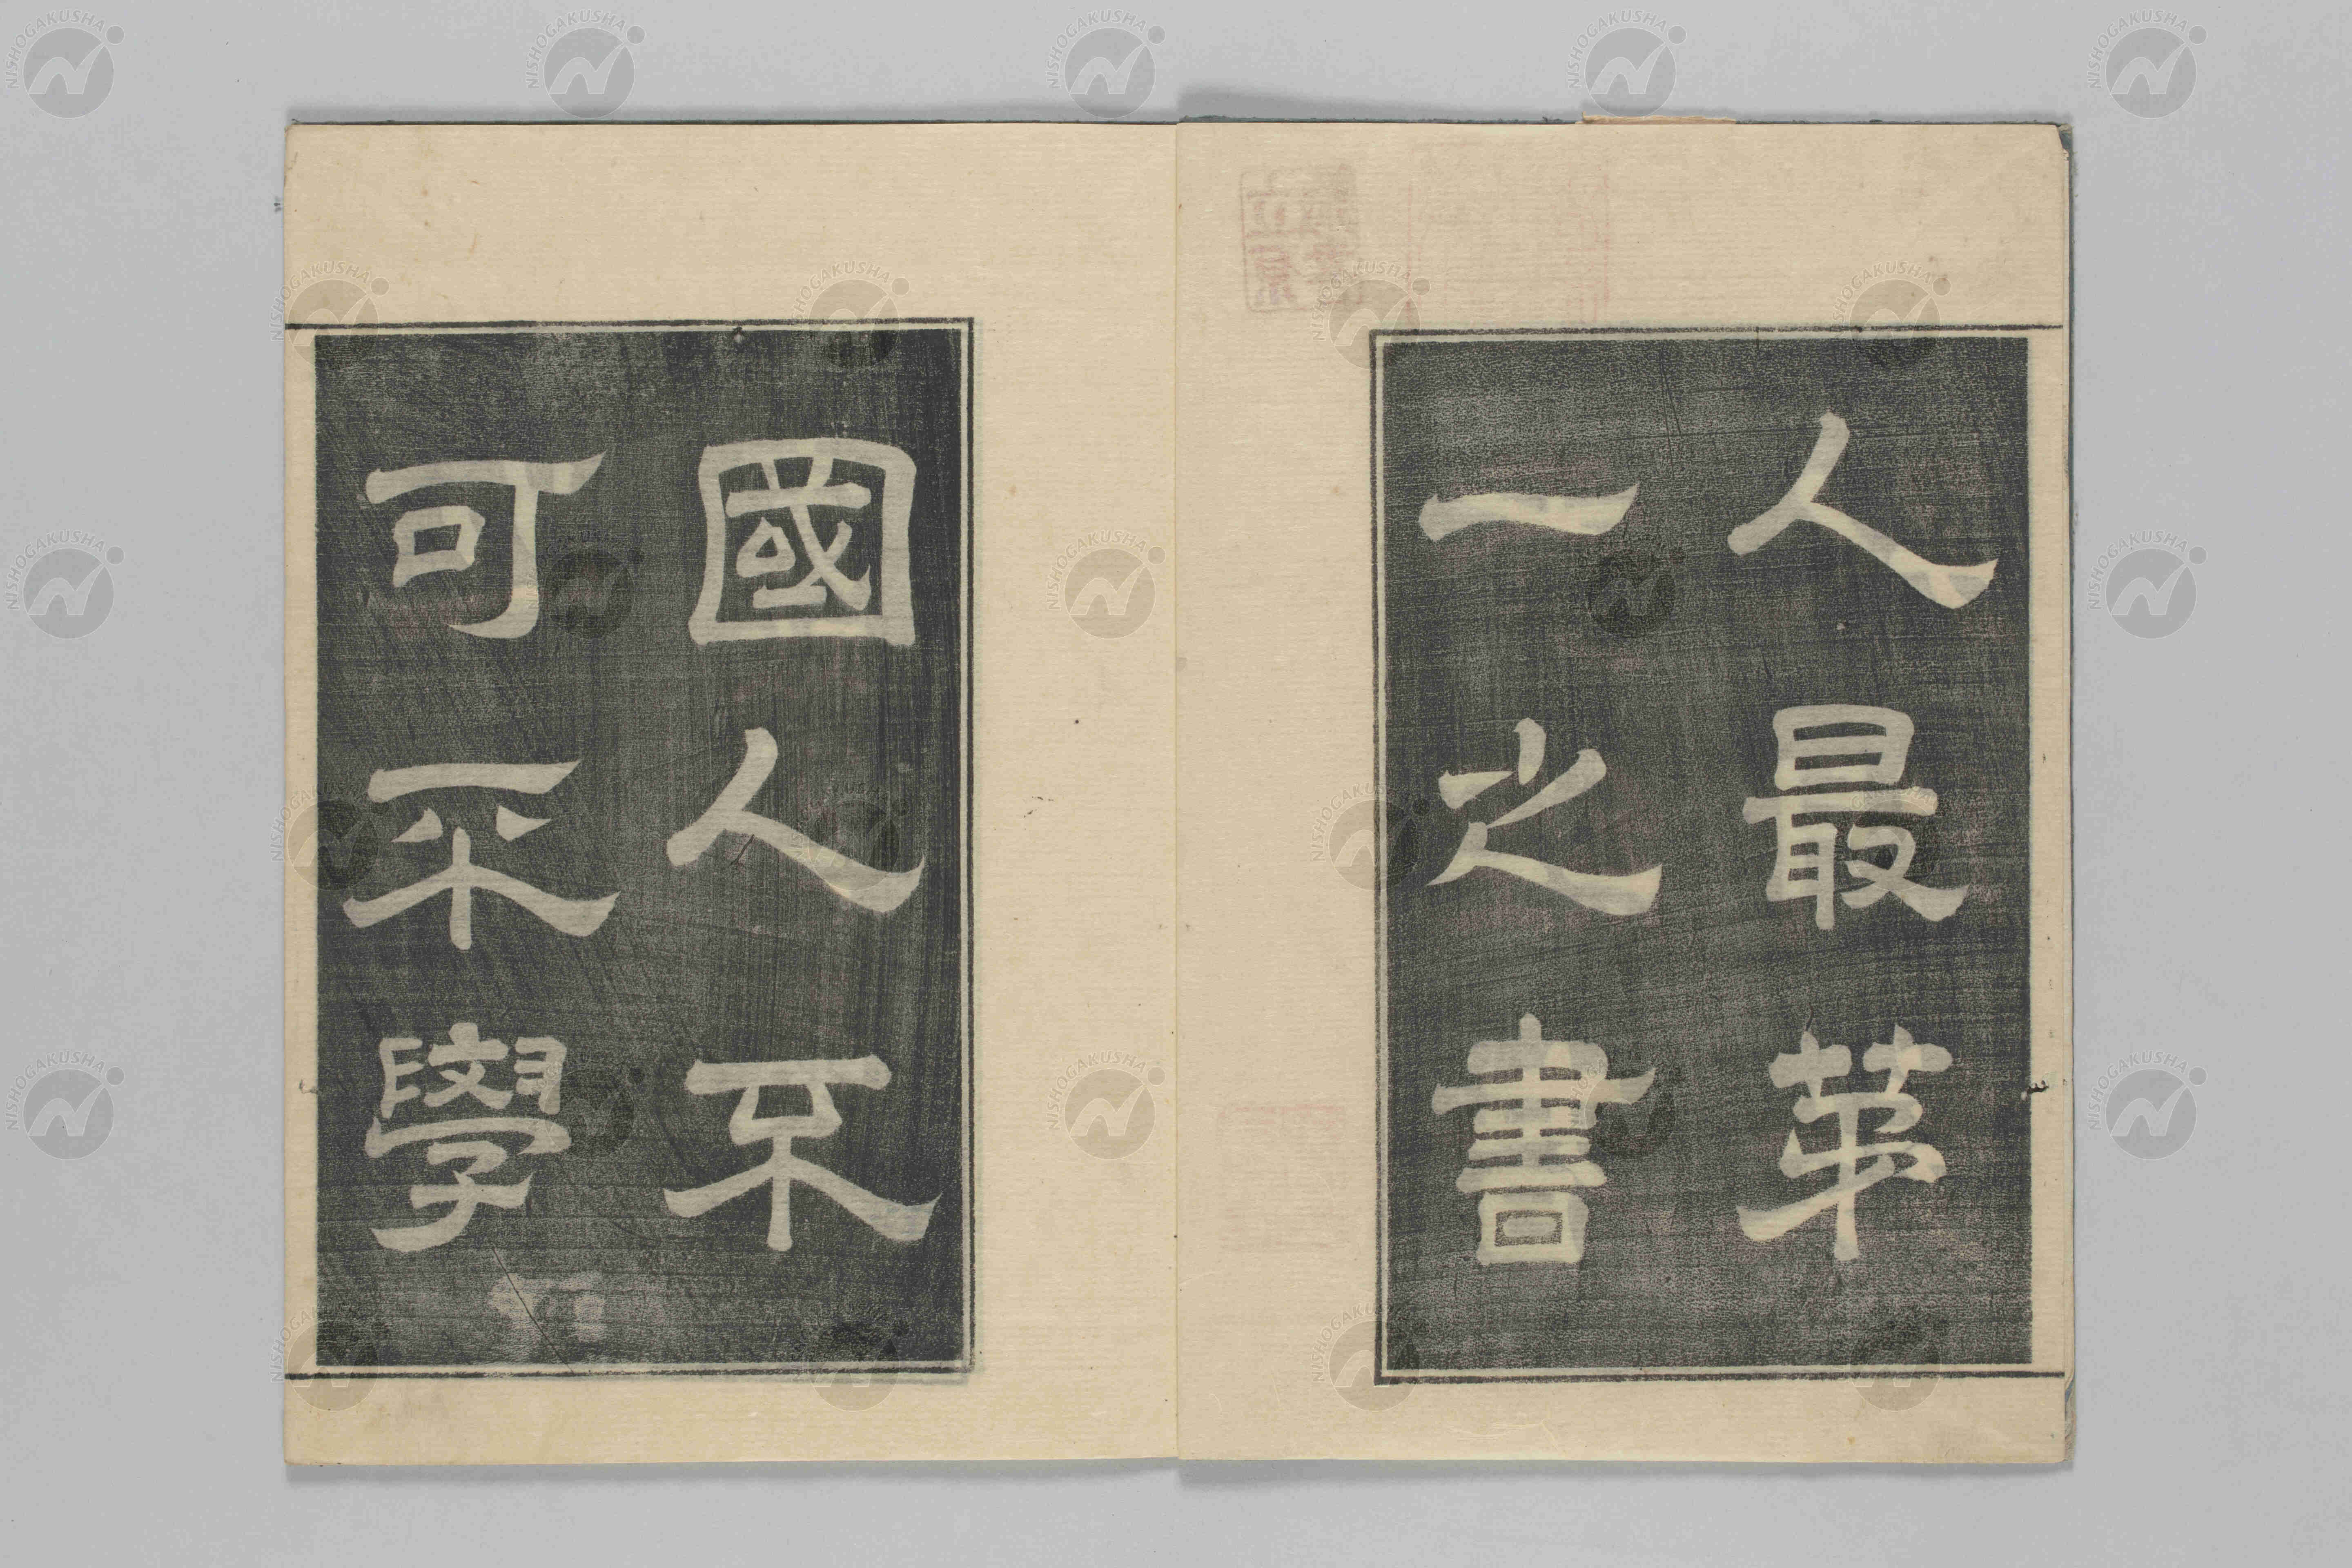 人最苐
一之書
國人不
可不學
NISHOGAKUSHA